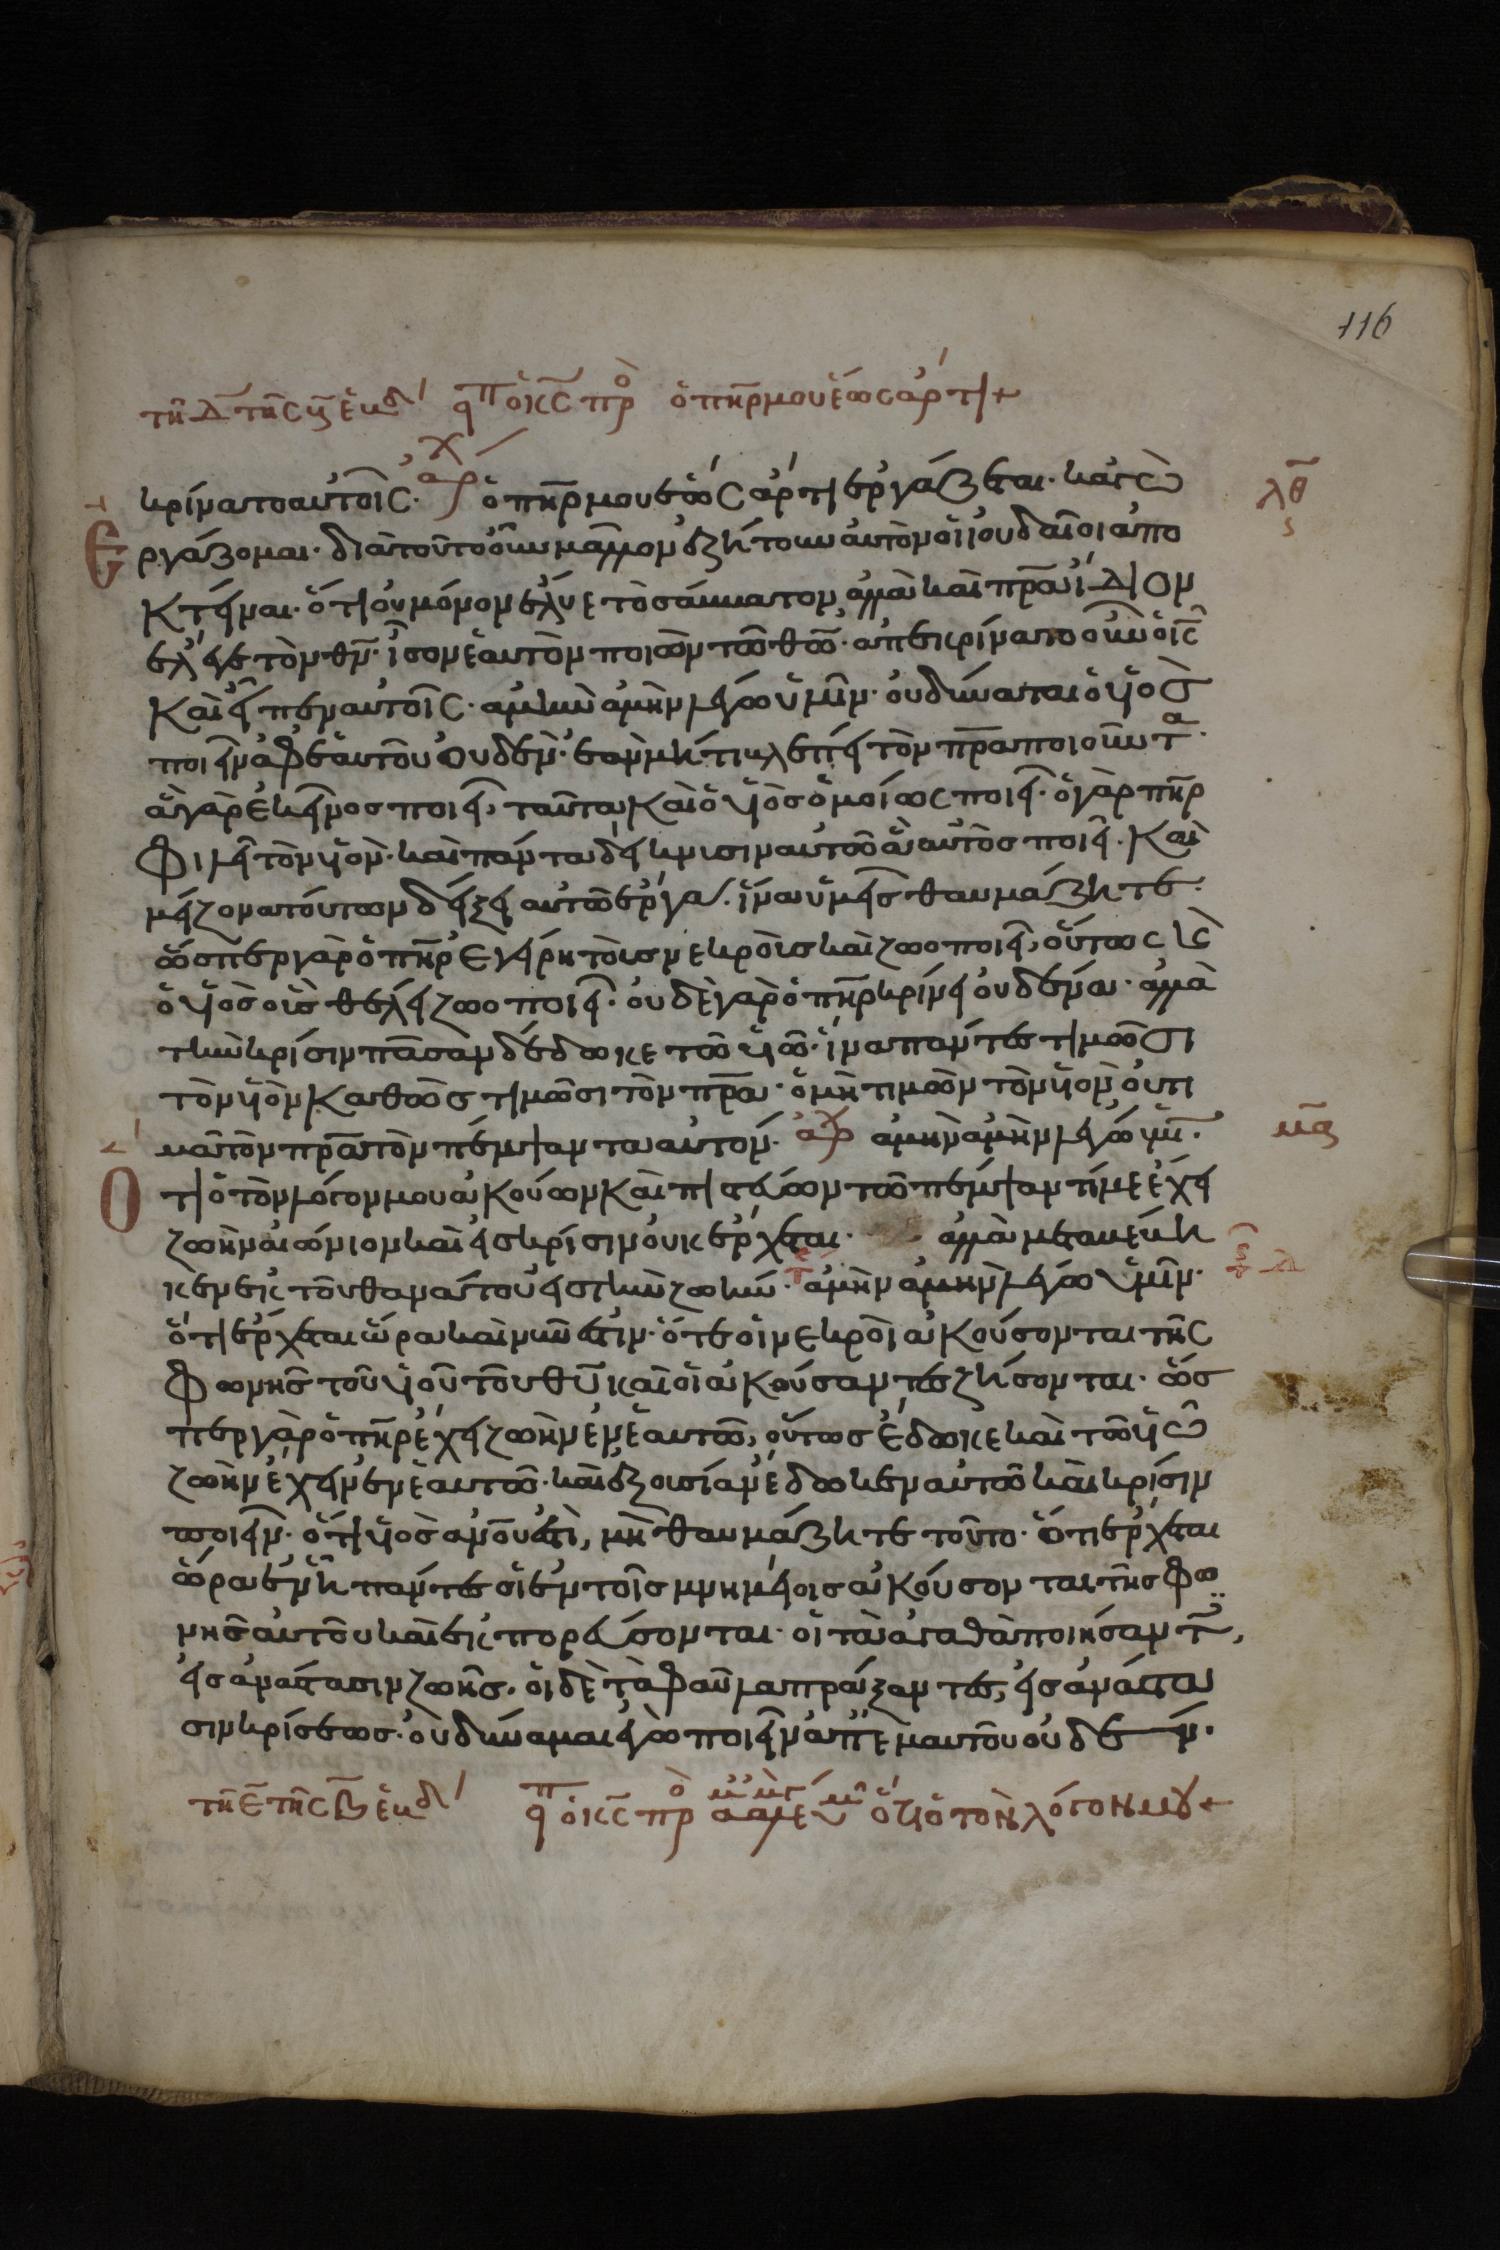 116
τῆ Δ τῆς ϛ ἑβδ ειπ ὁ κς πρ ὁ πηρ μου ἕως ἄρτι +
κρίνατο αὐτοῖς. ἀρχ ὁ πηρ μου ἕως ἄρτι ἐργάζεται. κἀγὼ
λθ
ἐργάζομαι. διὰ τοῦτο οὖν μᾶλλον ἐζήτουν αὐτὸν οἱ ἰουδαῖοι ἀπο
κτεῖναι. ὅτι οὐ μόνον ἔλυε τὸ σάββατον, ἀλλὰ καὶ πρα ἴδιον
ἔλεγε τὸν θν. ἴσον ἑαυτὸν ποιῶν τῶ θῶ. ἀπεκρίνατο οὖν ὁ ις
καὶ εἶπεν αὐτοῖς. ἀμὴν ἀμὴν λέγω ὑμῖν. οὐ δύναται ὁ υἱὸς
ποιεῖν ἀφ ἑαυτοῦ οὐδέν. ἐὰν μή τι βλέπει τὸν πρα ποιοῦντα.
ἃ γὰρ ἐκεῖνος ποιεῖ, ταῦτα καὶ ὁ υἱὸς ὁμοίως ποιεῖ. ὁ γὰρ πηρ
φιλεῖ τὸν υἱόν. καὶ πάντα δείκνυσιν αὐτῶ ἃ αὐτὸς ποιεῖ. καὶ
μείζονα τούτων δείξει αὐτῶ ἔργα. ἵνα ὑμεῖς θαυμάζητε.
ὥσπερ γὰρ ὁ πηρ ἐγείρη τοὺς νεκροὺς καὶ ζωοποιεῖ, οὕτως καὶ
ὁ υἱὸς οὓς θέλει ζωοποιεῖ. οὐδὲ γὰρ ὁ πηρ κρίνει οὐδένα. ἀλλὰ
τὴν κρίσιν πᾶσαν δέδωκε τῶ υἱῶ. ἵνα πάντες τιμῶσι
τὸν υἱὸν καθὼς τιμῶσι τὸν πρα. ὁ μὴ τιμῶν τὸν υἱὸν οὐ τι
μᾶ τὸν πρα τὸν πέμψαντα αὐτόν. ἀρχ ἀμὴν ἀμὴν λέγω ὑμῖν.
ὅτι ὁ τὸν λόγον μου ἀκούων καὶ πιστεύων τῶ πέμψαντί με ἔχει
ζωὴν αἰώνιον καὶ εἰς κρίσιν οὐκ ἔρχεται. ἀλλὰ μεταβέβη
κεν ἐκ τοῦ θανάτου εἰς τὴν ζωήν. ἀμὴν ἀμὴν λέγω ὑμῖν.
ὅτι ἔρχεται ὥρα καὶ νῦν ἐστιν. ὅτε οἱ νεκροὶ ἀκούσονται τῆς
φωνῆς τοῦ υἱοῦ τοῦ θυ καὶ οἱ ἀκούσαντες ζήσονται. ὥσ
περ γὰρ ὁ πηρ ἔχει ζωὴν ἐν ἑαυτῶ, οὕτως ἔδωκε καὶ τῶ υἱῶ
ζωὴν ἔχειν ἐν ἑαυτῶ. καὶ ἐξουσίαν ἔδωκεν αὐτῶ καὶ κρίσιν
ποιεῖν. ὅτι υἱὸς ανου ἐστὶ, μὴ θαυμάζητε τοῦτο. ὅτι ἔρχεται
ὥρα ἐν ἧ πάντες οἱ ἐν τοῖς μνημείοις ἀκούσονται τῆς φω
νῆς αὐτοῦ καὶ ἐκπορεύσονται. οἱ τὰ ἀγαθὰ ποιήσαντες,
εἰς ἀνάστασιν ζωῆς. οἱ δὲ τὰ φαῦλα πράξαντες, εἰς ἀνάστα
σιν κρίσεως. οὐ δύναμαι ἐγὼ ποιεῖν ἀπ ἐμαυτοῦ οὐδέν.
τῆ Ε τῆς Β ἑβδ ειπ ὁ κς πρ ὅτι ὁ τὸν λόγον μου +